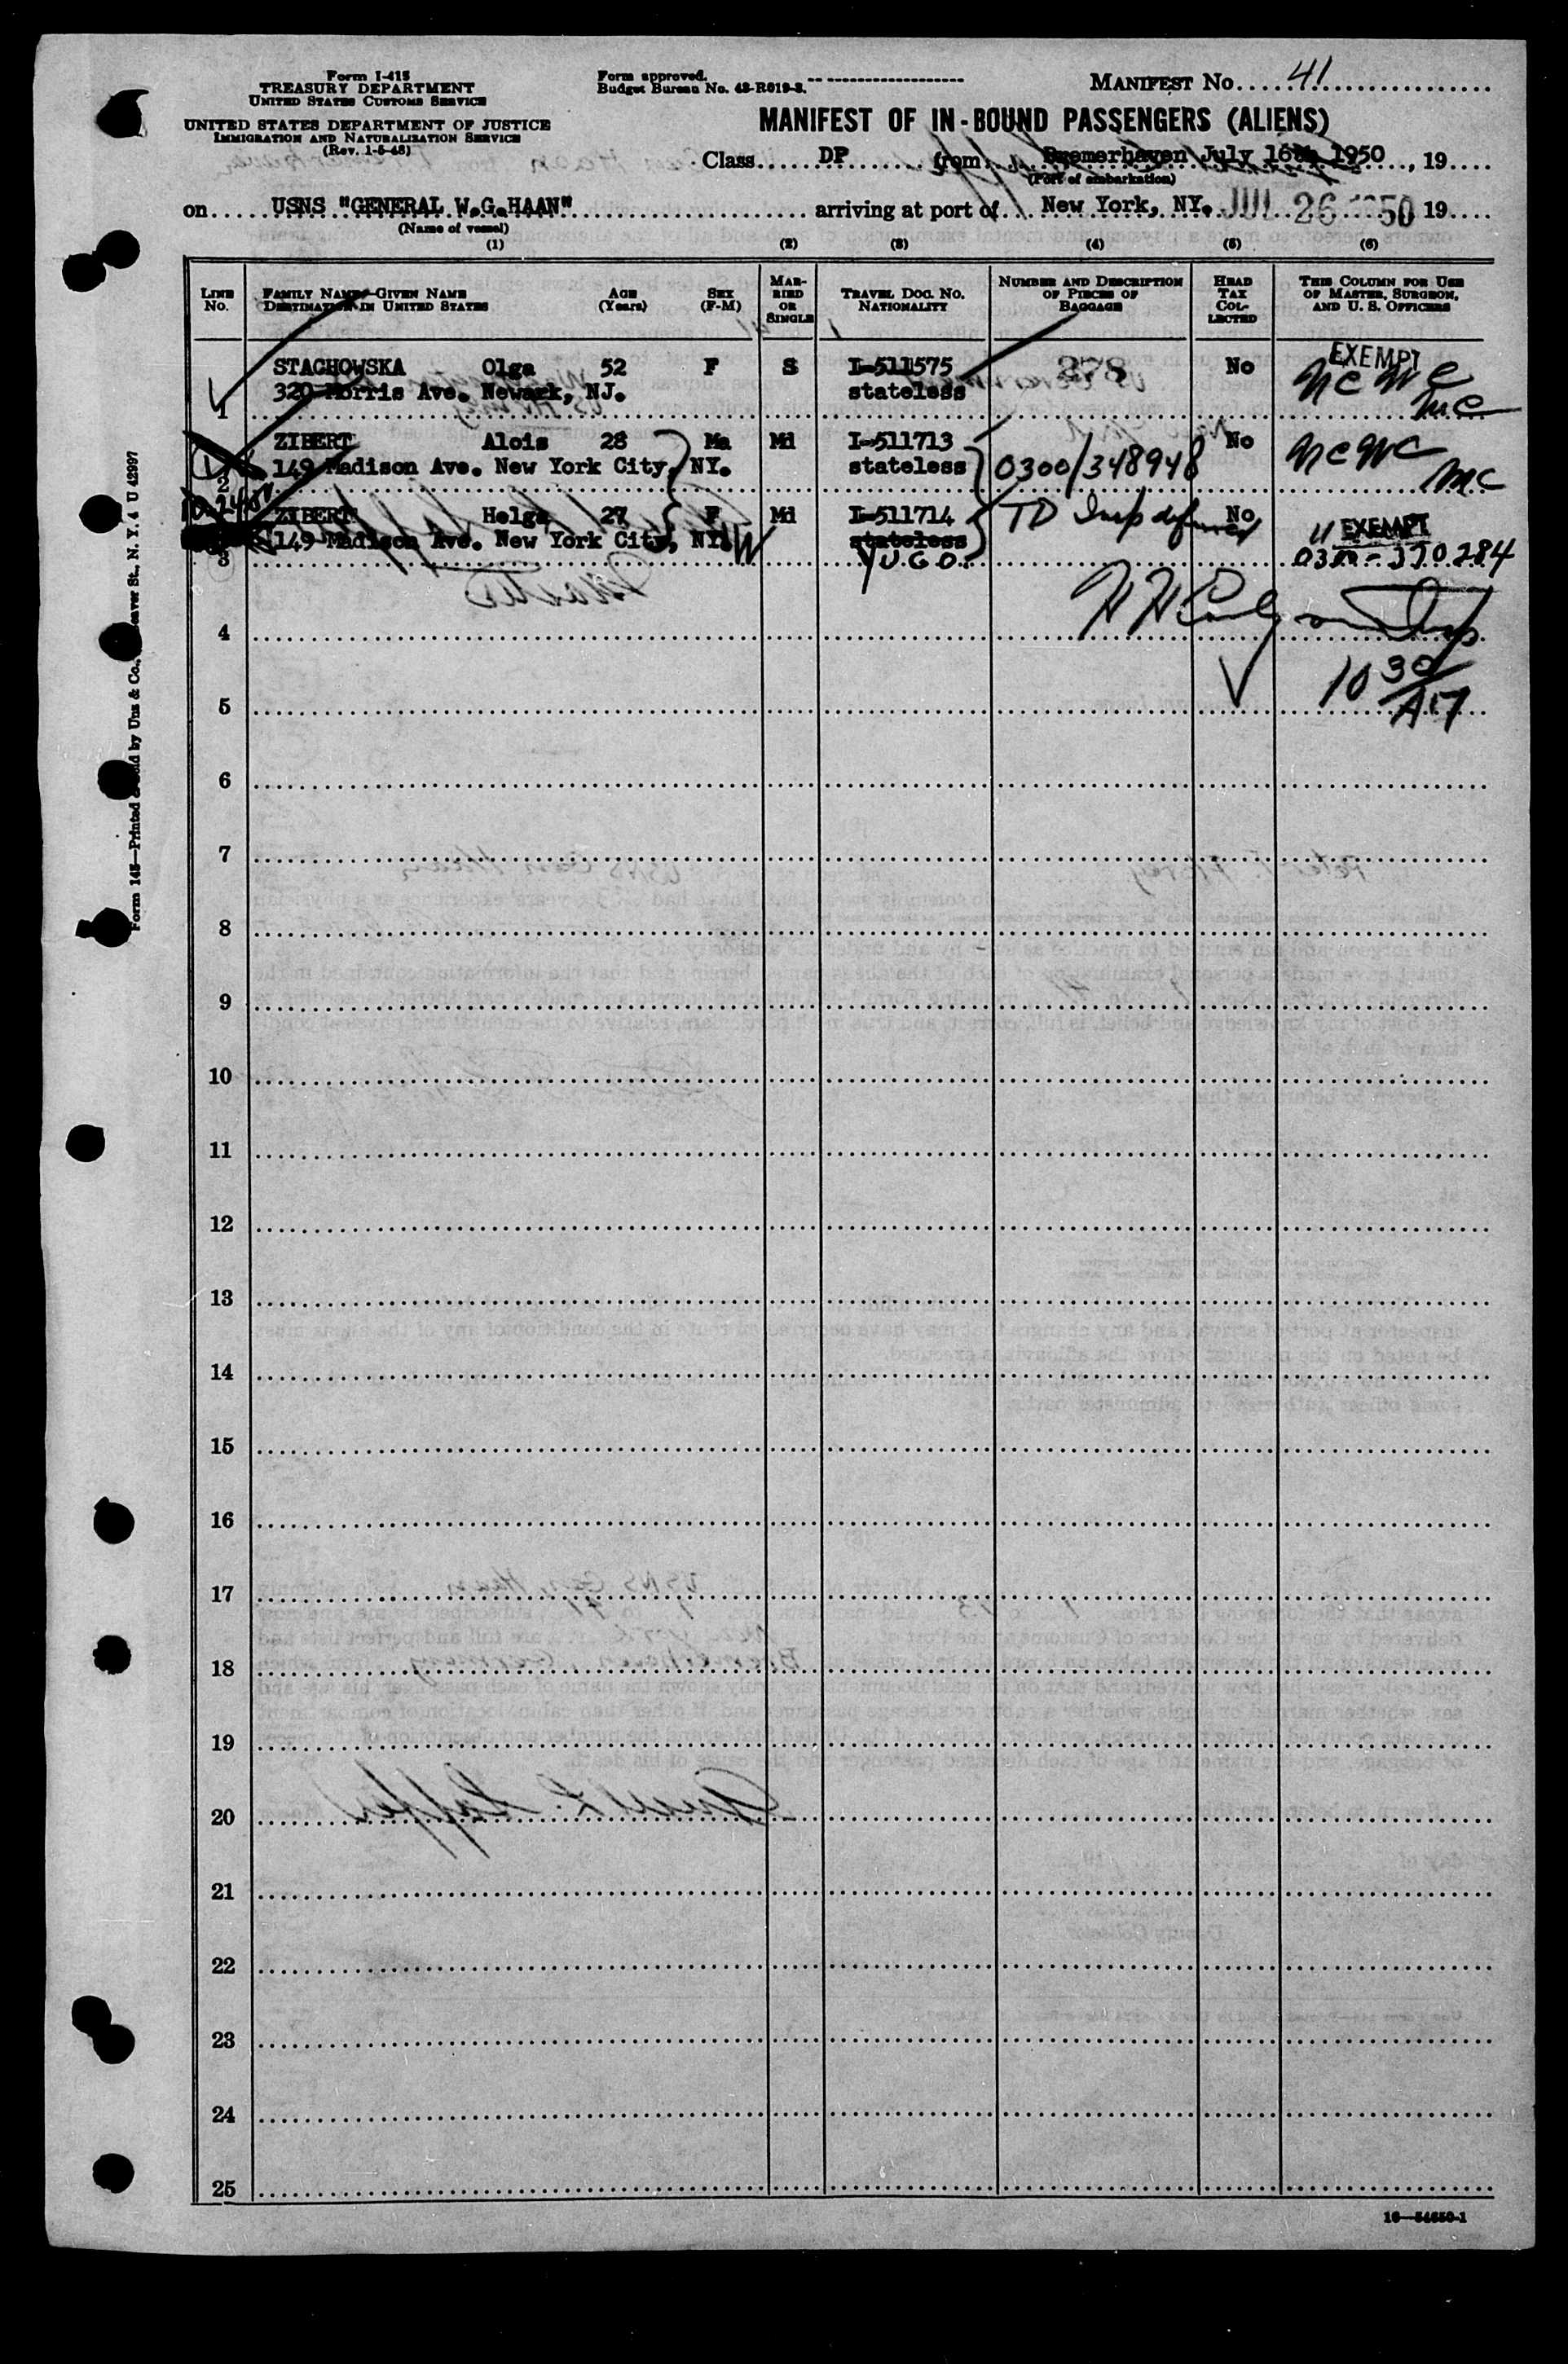 Form I-415
TREASURY DEPARTMENT
UNITED STATES CUSTOMS SERVICE
UNITED STATES DEPARTMENT OF JUSTICE
IMMIGRATION AND NATURALIZATION SERVICE
(Rev. 1-5-48)
Form approved.
Budget Bureau No. 43-R019-3.
MANIFEST No. 41
MANIFEST OF IN-BOUND PASSENGERS (ALIENS)
Class DP from Bremerhaven July 16th 1950, 19
(Port of embarkation)
on USNS "GENERAL W.G.HAAN" arriving at port of New York, NY. JUL 26 1950 19
(Name of vessel)
(1) (2) (3) (4) (5) (6)
LINE No. FAMILY NAME—GIVEN NAME DESTINATION IN UNITED STATES AGE (Years) SEX (F-M) MARRIED OR SINGLE TRAVEL DOC. NO. NATIONALITY NUMBER AND DESCRIPTION OF PIECES OF BAGGAGE HEAD TAX COLLECTED THIS COLUMN FOR USE OF MASTER, SURGEON, AND U. S. OFFICERS
STACHOWSKA Olga 52 F S I-511575 278 No EXEMPT
320 Morris Ave. Newark, NJ. stateless
1
ZIBERT Alois 28 Ma Md I-511713 No
149 Madison Ave. New York City, NY. stateless 0300/348948
2
ZIBERT Helga 27 F Md I-511714 TD Insp deferred No EXEMPT
149 Madison Ave. New York City, NY. W stateless
3 YUGO.
4
5
10 30
6
7
8
9
10
11
12
13
14
15
16
17
18
19
20
21
22
23
24
25
16—54650-1